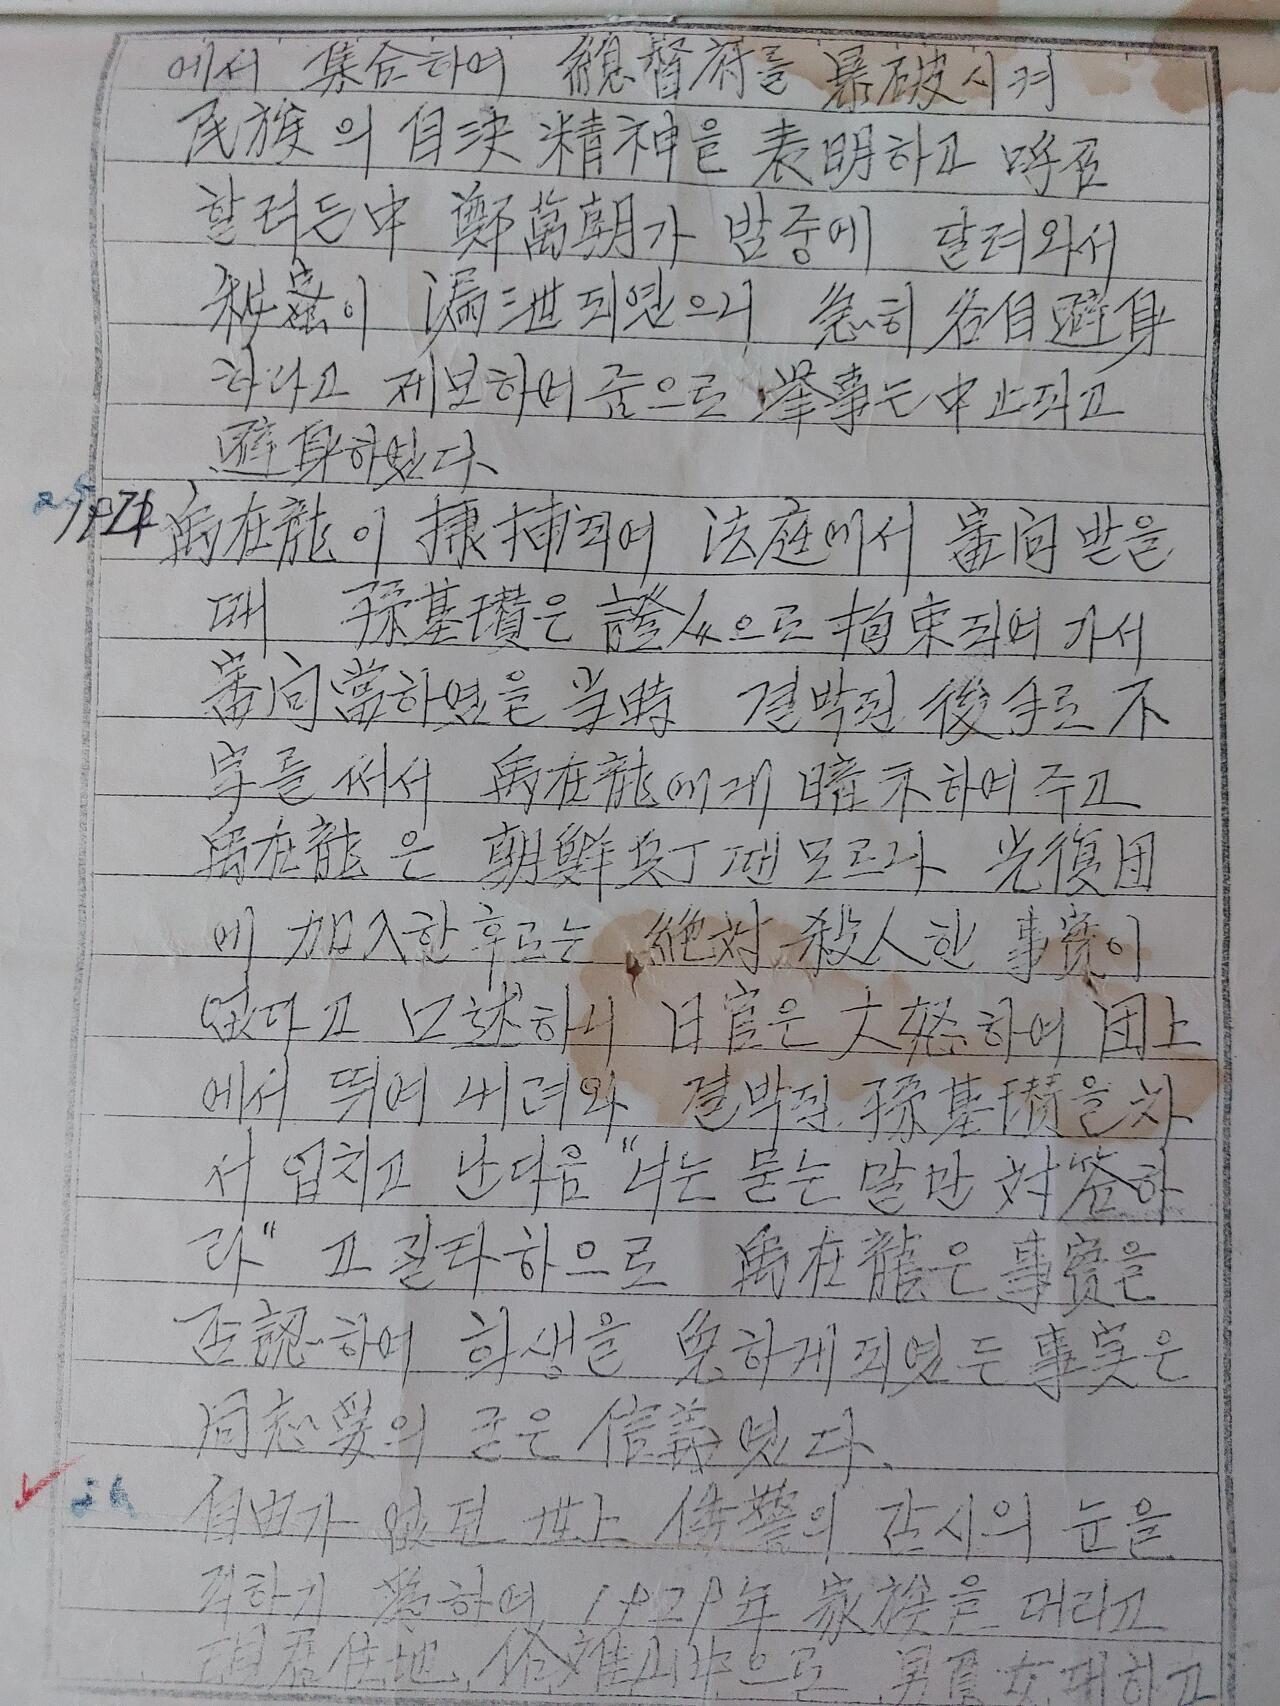 에서 集合하여 總督府를 暴破시켜
民族의 自決精神을 表明하고 呼応
할려든中 鄭萬朝가 밤중에 달려와서
秘密이 漏泄되였으니 急히 各自 避身
하라고 제보하여줌으로 挙事는 中止되고
避身하였다.
禹在龍이 捕되여 法庭에서 審问받을
때 孫基瓚은 證人으로 拘束되여 가서
審问當하였을 当時 결박된 後手로 不
字를 써서 禹在龍에게 暗示하여 주고
禹在龍은 朝鮮兵丁땐 모르나 光復団
에 加入한후로는 絶対 殺人한 事實이
없다고 口述하니 日官은 大怒하여 団上
에서 뛰여 내려와 결박된 孫基瓚을 차
서 업치고 난다음 "너는 묻는 말만 対答하
라" 고 질타하으로 禹在龍은 事實을
否認하여 희생을 免하게 되였든 事実은
同志愛의 굳은 信義였다.
自由가 없던 世上 倭警의 감시의 눈을
피하기 爲하여 1929年 家族을 데리고
現居住地 俗離山中으로 男負女戴하고